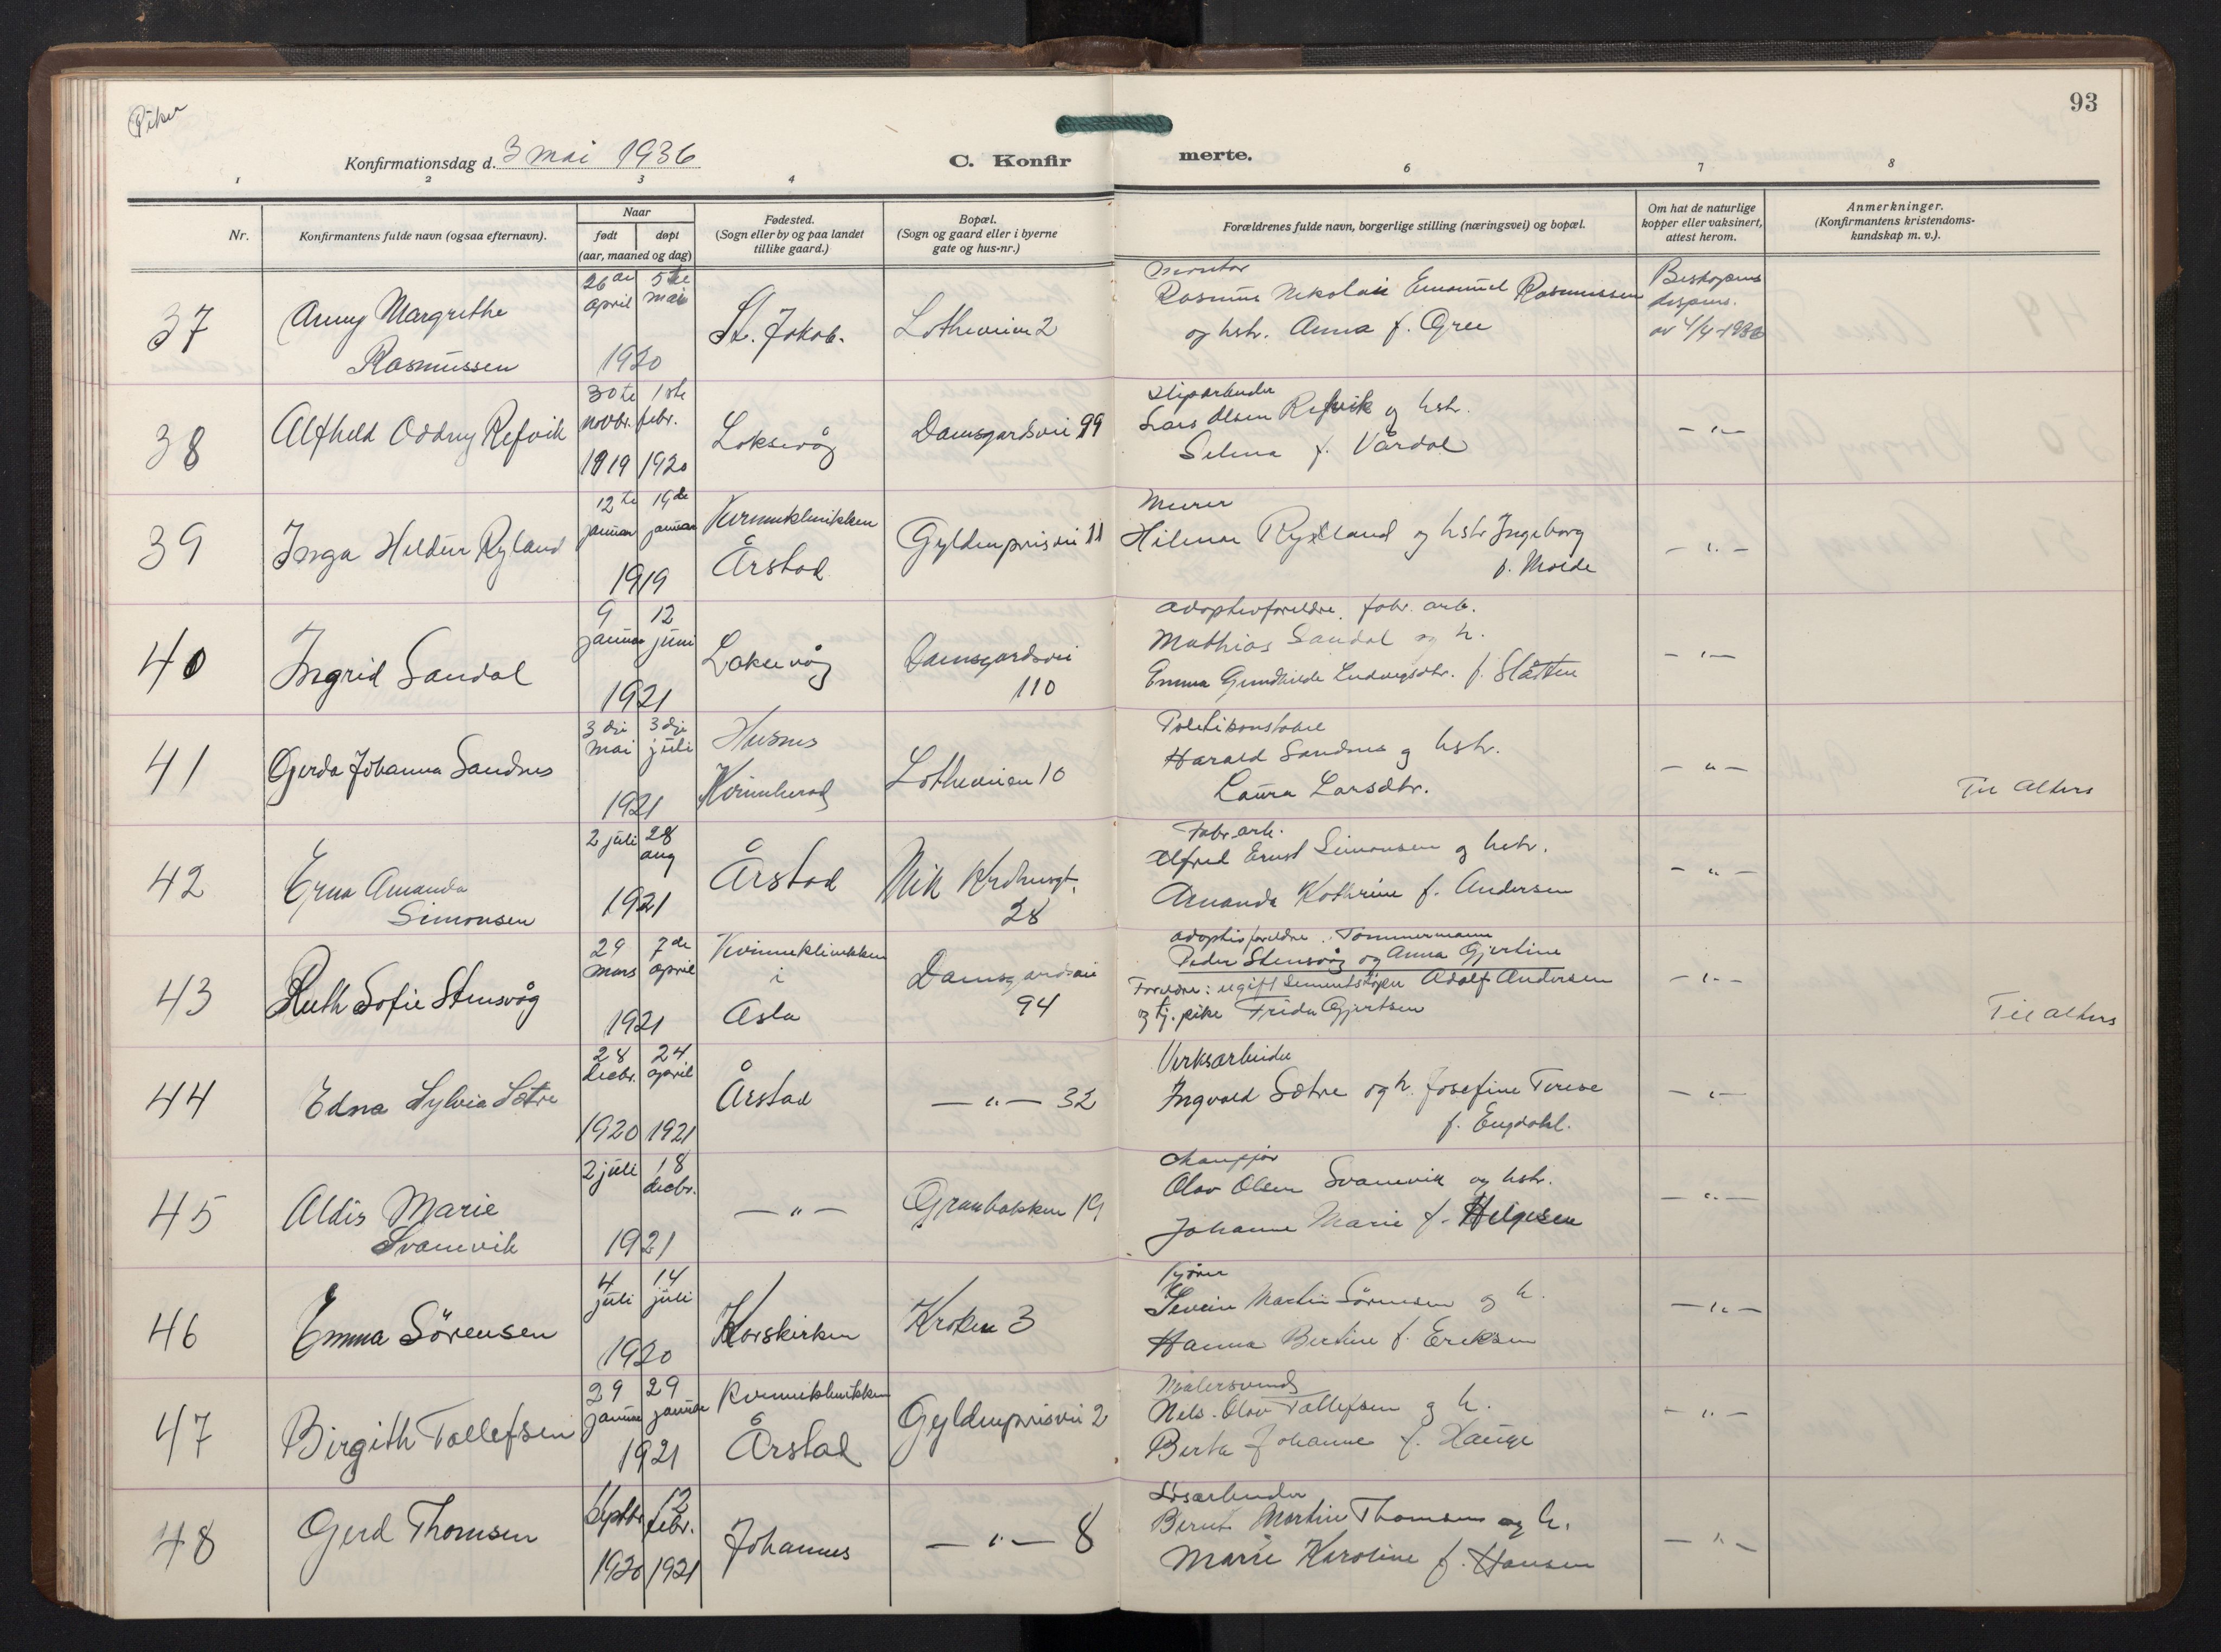 Piker
93
Konfirmationsdag d. 3 mai 1936
C. Konfirmerte.
1 2 3 4 6 7 8
Nr.
Konfirmantens fulde navn (ogsaa efternavn).
Naar
født døpt
(aar, maaned og dag)
Fødested.
(Sogn eller by og paa landet
tillike gaard.)
Bopæl.
(Sogn og gaard eller i byerne
gate og hus-nr.)
Forældrenes fulde navn, borgerlige stilling (næringsvei) og bopæl.
Om hat de naturlige
kopper eller vaksinert,
attest herom.
Anmerkninger.
(Konfirmantens kristendoms-
kundskap m. v.).
37
Anny Margrethe
Rasmussen
26de april 5te mai
1920
St. Jakob.
Lotheveien 2
Montør
Rasmus Nikolai Emanuel Rasmussen
og hstr. Anna f. Gree
Biskopens
dispens.
av 4/4-1936
38
Alfhild Oddny Refvik
30te novbr. 1919
1ste febr. 1920
Laksevåg
Damsgårdsvei 99
Sliparbeider
Lars Olsen Refvik og hstr.
Selma f. Vårdal
- " -
39
Inga Hildur Ryland
12te januar 19de januar
1919
Kvinneklinikken
Årstad
Gyldenprisvei 11
Murer
Hilmar Ryland og hstr Ingeborg
f. Molde
- " -
40
Ingrid Sandal
9 januar 12 juni
1921
Laksevåg
Damsgårdsvei
110
Adoptivforeldre. fabr. arb.
Mathias Sandal og h.
Emma Gundhilde Ludvigsdtr. f. Slåtten
- " -
41
Gerda Johanna Sandnes
3dje mai 3dje juli
1921
Husnes
Kvinnherad
Lotheveien 10
Politikonstabel
Harald Sandnes og hstr.
Laura Larsdtr.
- " -
Til Alters
42
Erna Amanda
Simonsen
2 juli 28 aug
1921
Årstad
Nik Krohnsgt.
28
Fabr. arb.
Alfred Ernst Simonsen og hstr.
Amanda Kathrine f. Andersen
- " -
43
Ruth Sofie Stensvåg
29 mars 7de april
1921
Kvinneklinikken
i
Oslo
Damsgårdsvei
94
Adoptivforeldre: Tømmermann
Peder Stensvåg og Anna Gjertine
Foreldre: ugift sementstøper Adolf Andersen
og tj. pike Frida Gjertsen
- " -
Til alters
44
Edna Sylvia Sætre
28 decbr. 1920
24 april 1921
Årstad
- " - 32
Verksarbeider
Ingvald Sætre og h. Josefine Terese
f. Engdahl.
- " -
45
Aldis Marie
Svanevik
2 juli 18 decbr.
1921
- " -
Granbakken 19
Olav Olsen Svanevik og hstr.
Johanne Marie f. Helgesen
- " -
46
Emma Sörensen
4 juli 14 juli
1920
Korskirken
Kroken 3
Kjører
Severin Martin Sörensen og h.
Hanna Bertine f. Eriksen
- " -
47
Birgith Tollefsen
29 januar 29 januar
1921
Kvinneklinikken
Årstad
Gyldenprisvei 2
Malersvend
Nils Olav Tollefsen og h.
Berta Johanne f. Hauge
- " -
48
Gerd Thomsen
septbr. 1920
12 febr. 1921
Johannes
- " - 8
Løsarbeider
Bernt Martin Thomsen og h.
Marie Karoline f. Hansen
- " -